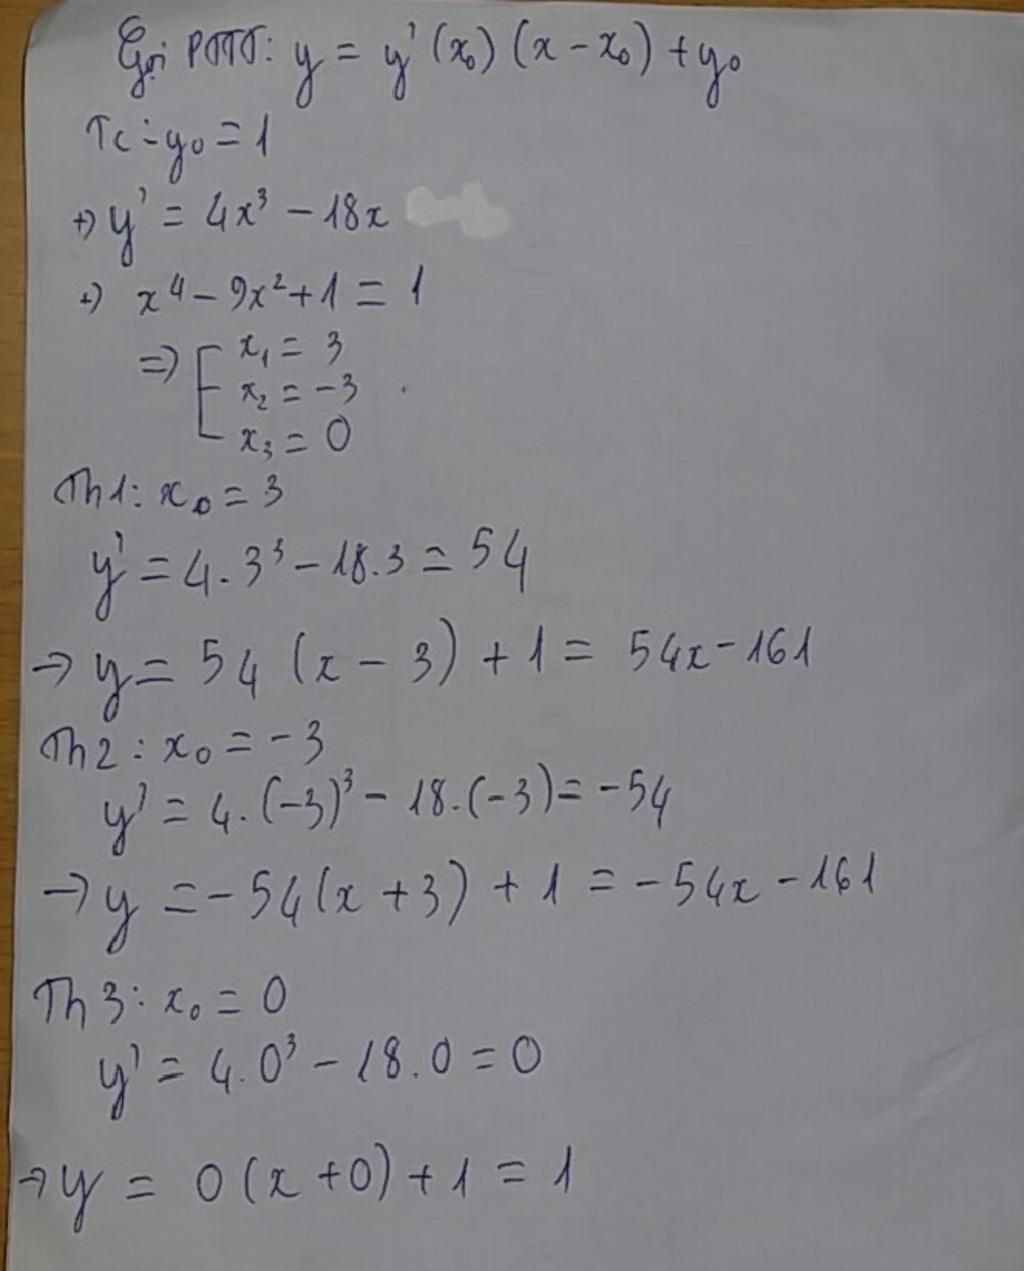 Gọi PTTT: y = y'(x₀)(x - x₀) + y₀
Tc: y₀ = 1
+) y' = 4x³ - 18x
+) x⁴ - 9x² + 1 = 1
=> [ x₁ = 3
x₂ = -3
x₃ = 0
Th1: x₀ = 3
y' = 4.3³ - 18.3 = 54
-> y = 54 (x - 3) + 1 = 54x - 161
Th2: x₀ = -3
y' = 4.(-3)³ - 18.(-3) = -54
-> y = -54(x + 3) + 1 = -54x - 161
Th3: x₀ = 0
y' = 4.0³ - 18.0 = 0
-> y = 0(x + 0) + 1 = 1